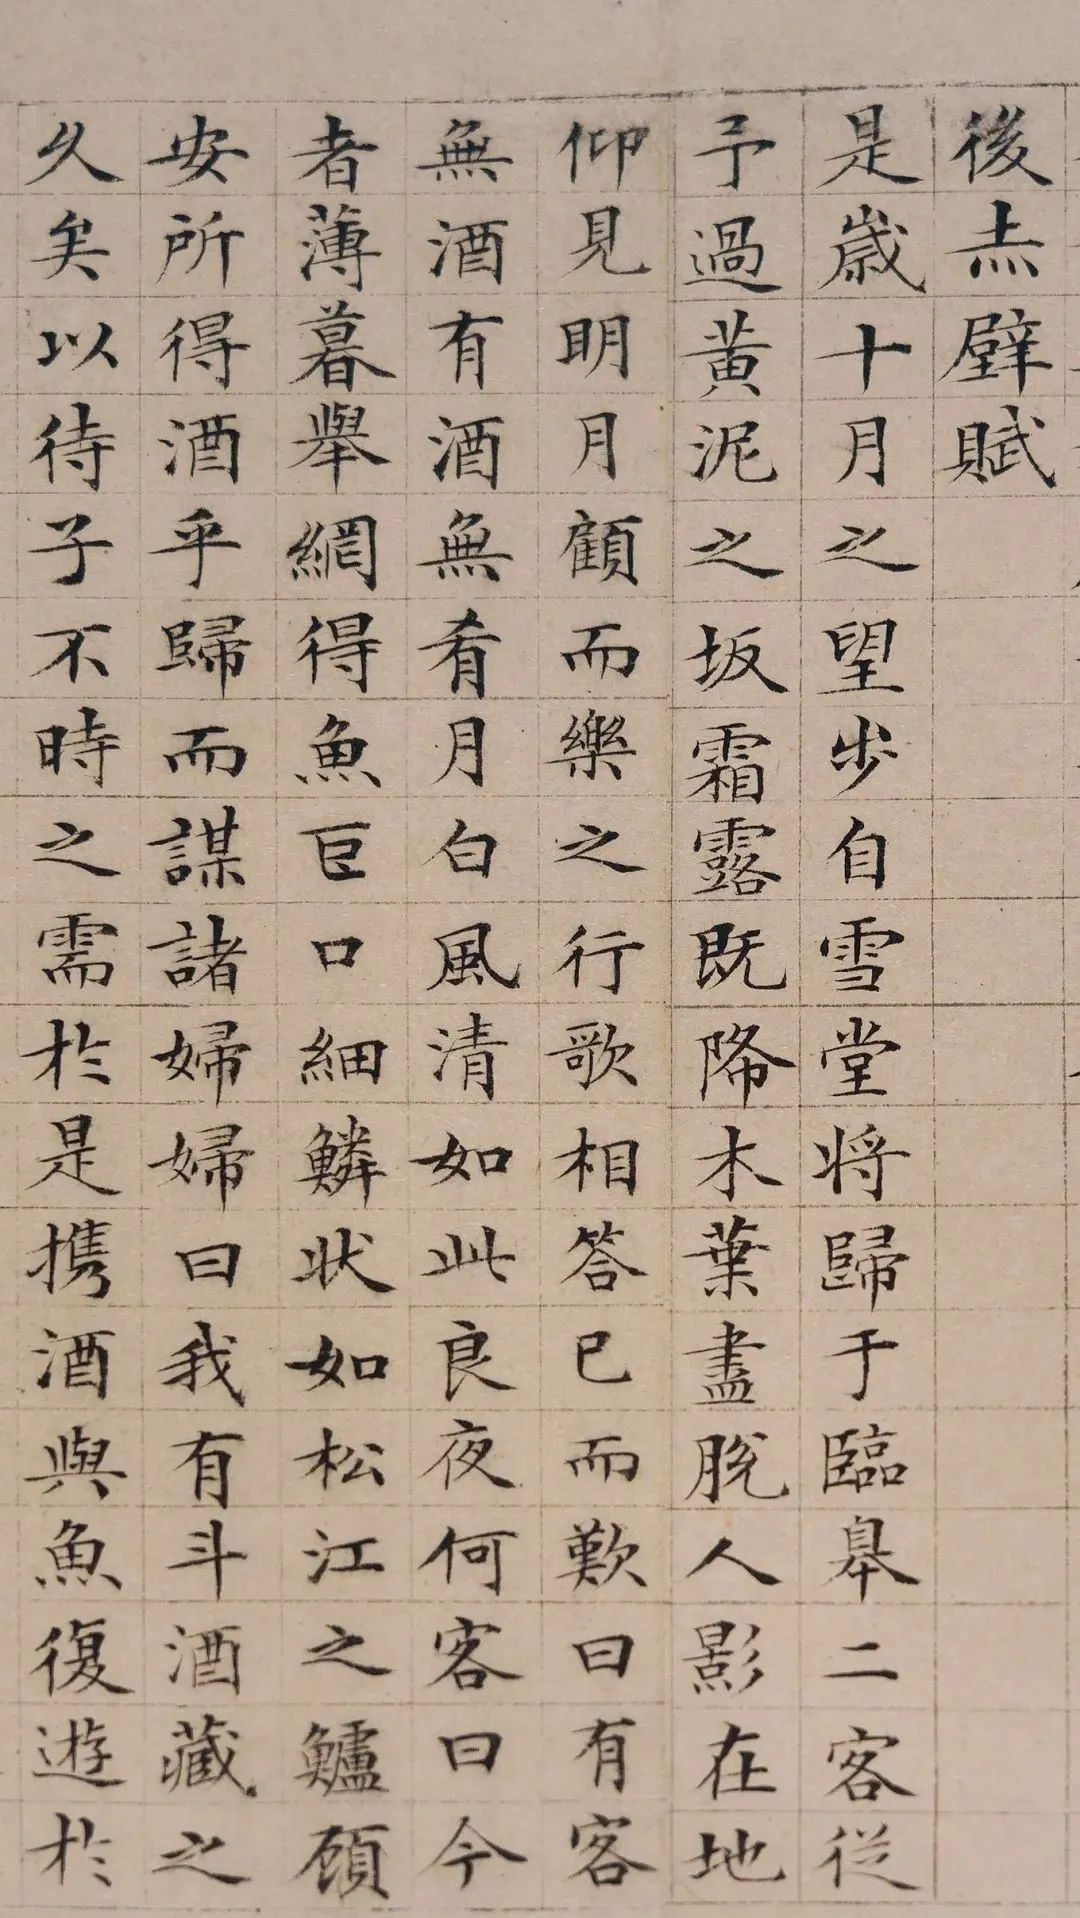 後赤壁賦
是歲十月之望步自雪堂將歸于臨皋二客從
予過黃泥之坂霜露既降木葉盡脫人影在地
仰見明月顧而樂之行歌相答已而歎曰有客
無酒有酒無肴月白風清如此良夜何客曰今
者薄暮舉網得魚巨口細鱗狀如松江之鱸顧
安所得酒乎歸而謀諸婦婦曰我有斗酒藏之
久矣以待子不時之需於是携酒與魚復遊於